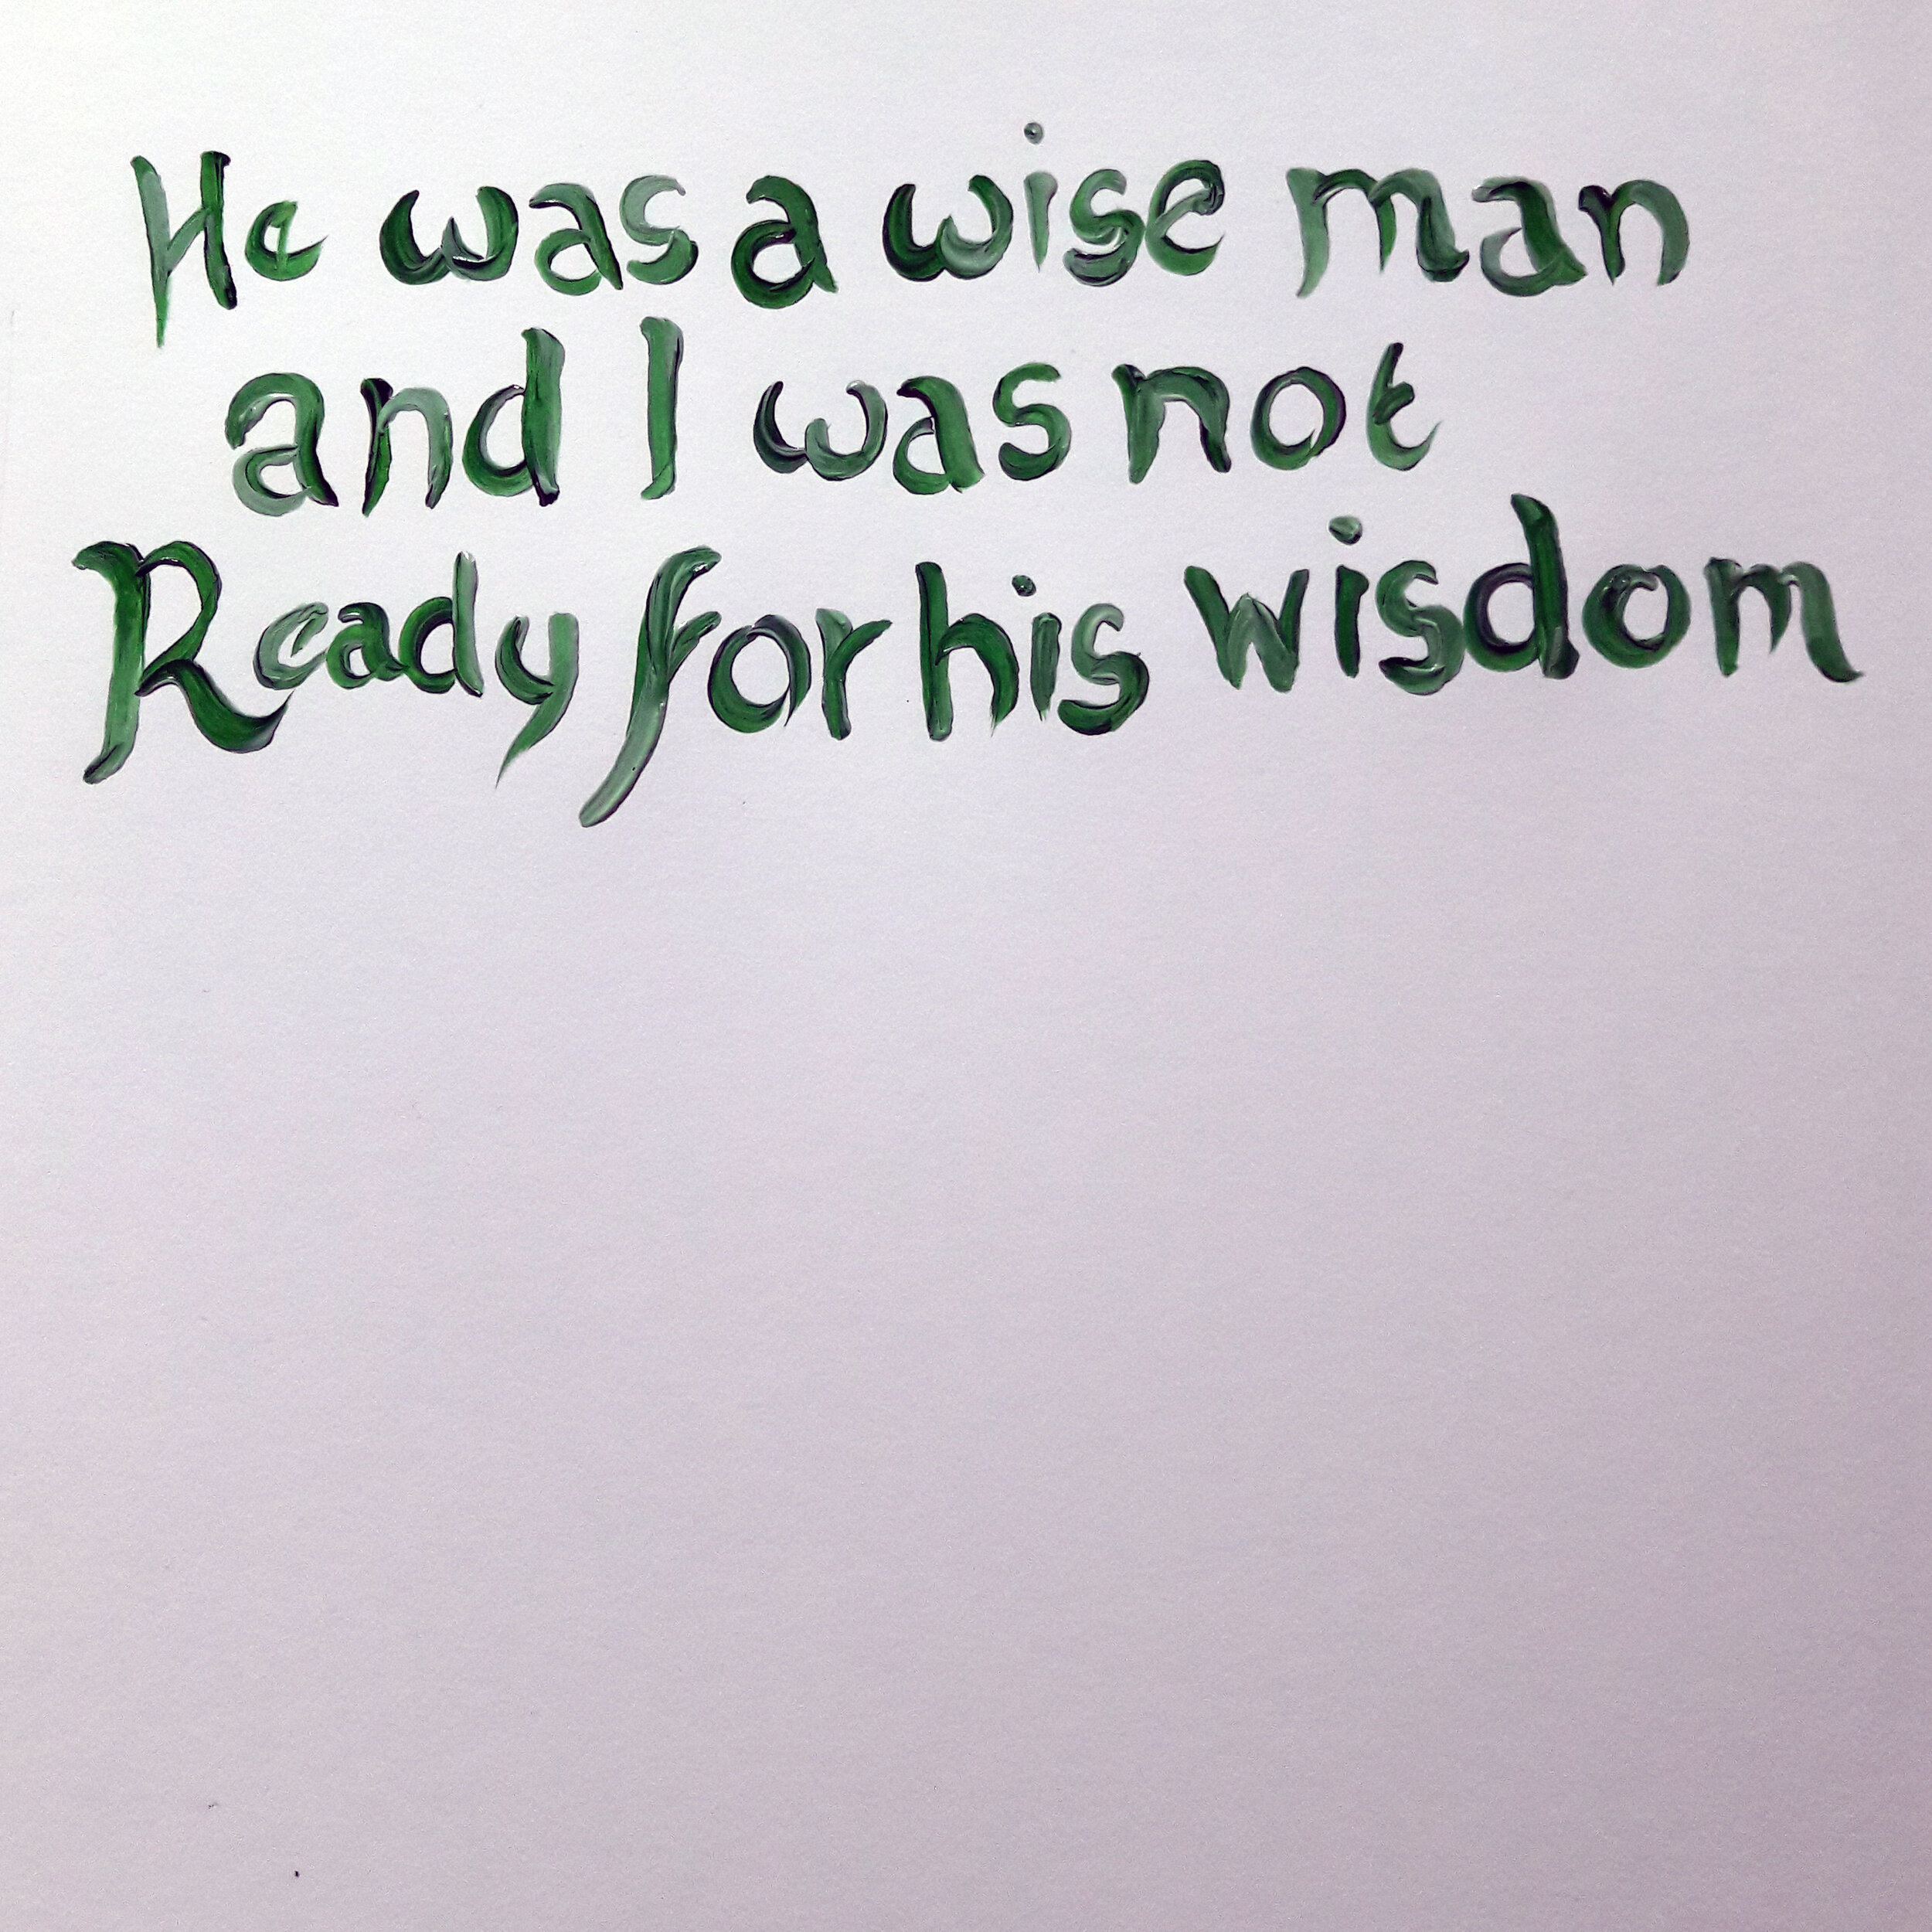 He was a wise man
and I was not
Ready for his wisdom